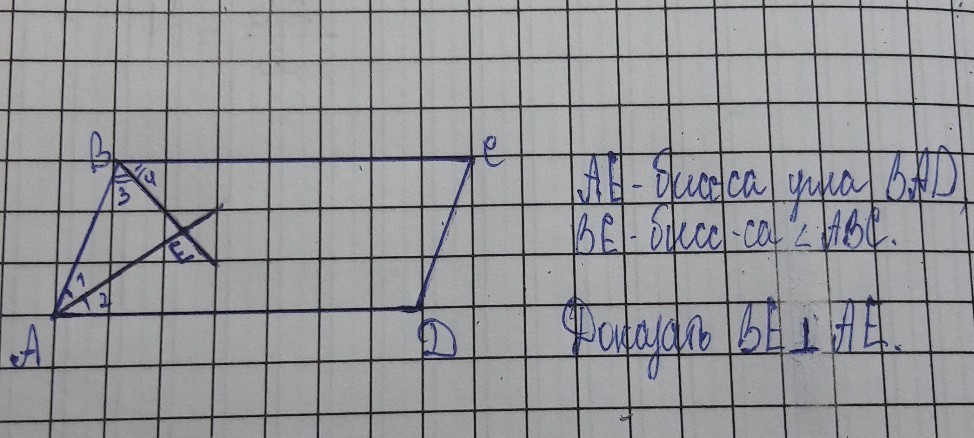 B
C
4
3
E
1
2
A
D
AE - бисс-са угла BAD,
BE - бисс-са ∠ ABC.
Доказать BE ⊥ AE.